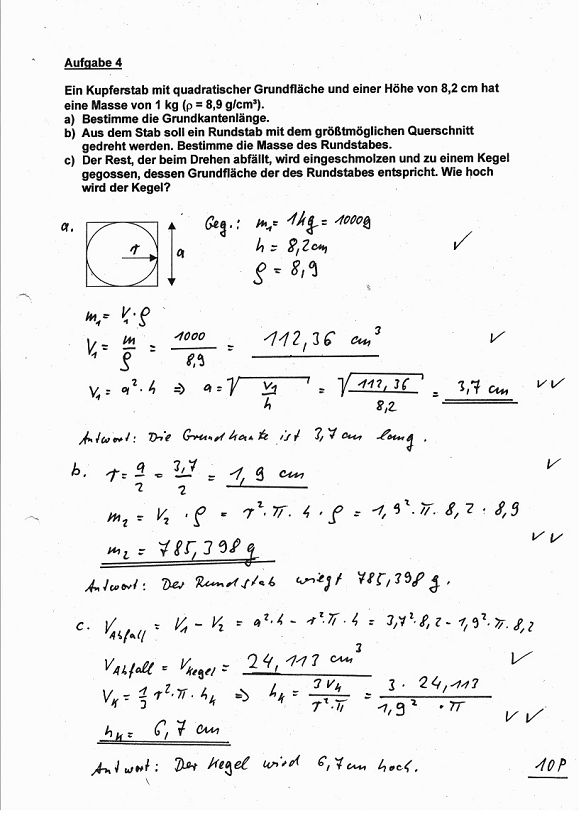 Aufgabe 4
Ein Kupferstab mit quadratischer Grundfläche und einer Höhe von 8,2 cm hat
eine Masse von 1 kg (ρ = 8,9 g/cm³).
a) Bestimme die Grundkantenlänge.
b) Aus dem Stab soll ein Rundstab mit dem größtmöglichen Querschnitt
gedreht werden. Bestimme die Masse des Rundstabes.
c) Der Rest, der beim Drehen abfällt, wird eingeschmolzen und zu einem Kegel
gegossen, dessen Grundfläche der des Rundstabes entspricht. Wie hoch
wird der Kegel?
a. r a Geg.: m₁ = 1kg = 1000g
h = 8,2cm ✓
ρ = 8,9
m₁ = V₁·ρ
V₁ = m/ρ = 1000/8,9 = 112,36 cm³ ✓
V₁ = a²·h ⇒ a = √(V1/h) = √(112,36/8,2) = 3,7 cm ✓✓
Antwort: Die Grundkante ist 3,7cm lang.
b. r = a/2 = 3,7/2 = 1,9 cm ✓
m₂ = V₂ · ρ = r²·π·h·ρ = 1,9²·π·8,2·8,9
m₂ = 785,398 g ✓✓
Antwort: Der Rundstab wiegt 785,398 g.
c. V_Abfall = V₁ - V₂ = a²·h - r²·π·h = 3,7²·8,2 - 1,9²·π·8,2
V_Abfall = V_Kegel = 24,113 cm³ ✓
V_K = 1/3 r²·π·h_K ⇒ h_K = 3V_K/r²·π = 3·24,113/1,9²·π
h_K = 6,7 cm ✓✓
Antwort: Der Kegel wird 6,7cm hoch. 10P